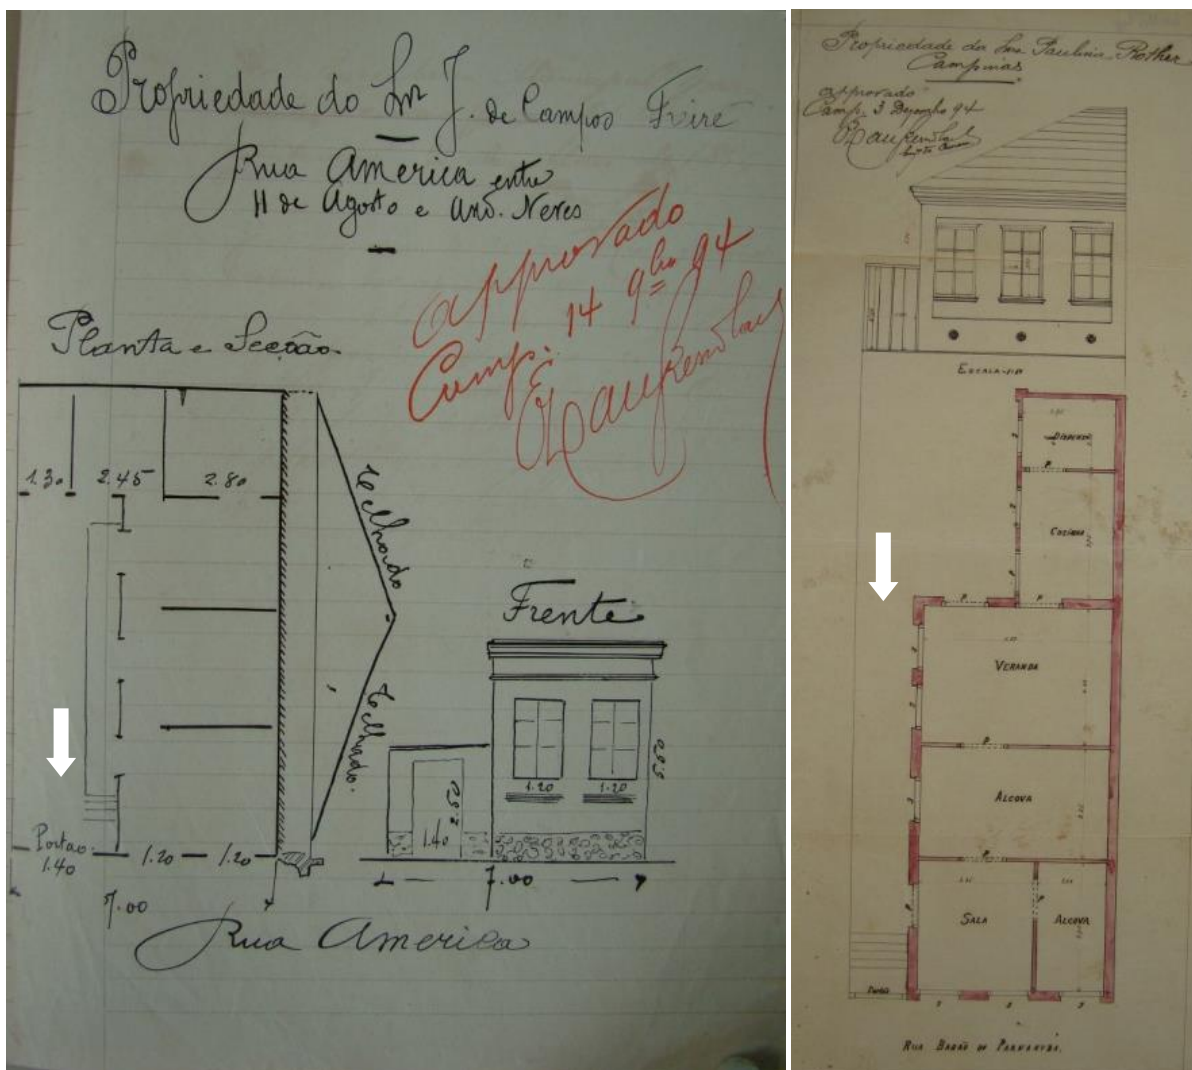 Propriedade do Snr J. de Campos Freire
Rua America entre
11 de Agosto e And. Neves
approvado
Camp. 14 9bro 94
Planta e Secção
1.30
2.45
2.80
Telhado
Telhado.
Portao
1.40
1.20
1.20
7.00
Frente
1.20
1.20
2.50
1.40
7.00
Rua America
Propriedade da Snra Paulina Rother
Campinas
approvado
Camp. 3 Dezembro 94
ESCALA
DISPENSA
P.
COZINHA
P.
P.
VERANDA
P.
ALCOVA
P.
SALA
ALCOVA
Portão
RUA BARÃO DE PARNAHYBA.